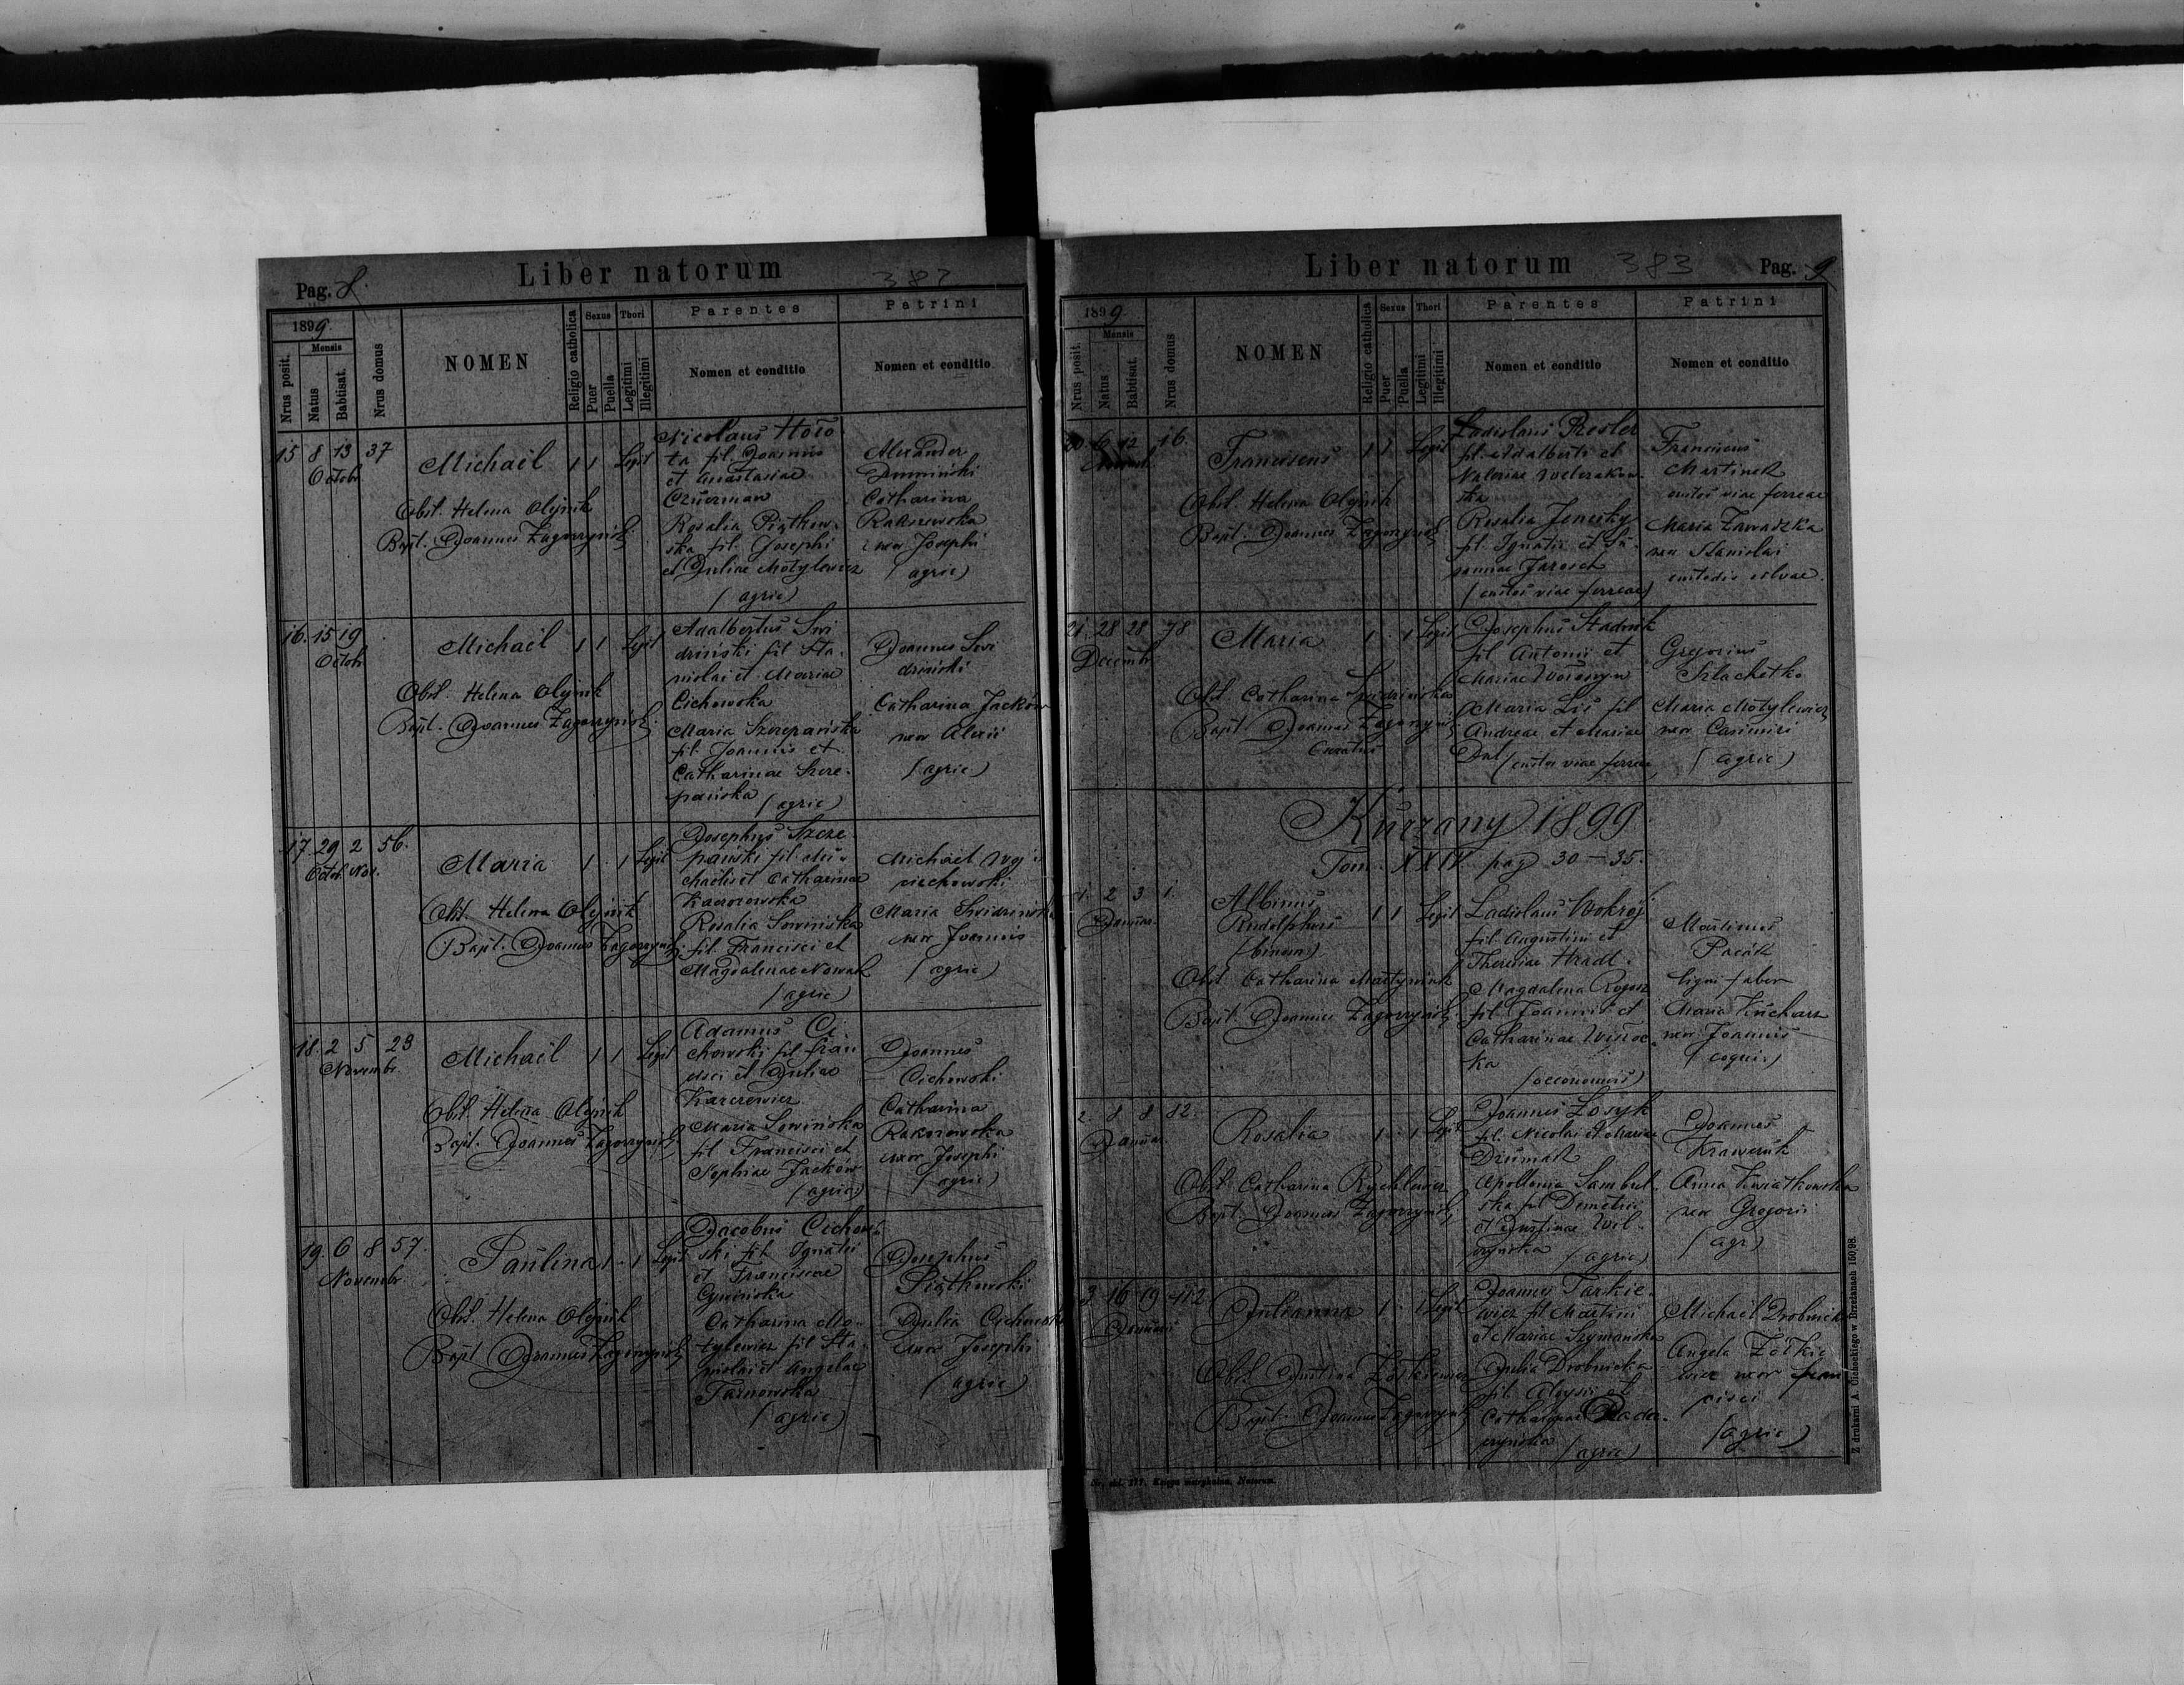 Pag. 8.
Liber natorum
382
1899.
Nrus posit.
Mensis
Natus
Babtisat.
Nrus domus
NOMEN
Religio catholica
Sexus
Puer
Puella
Thori
Legitimi
Illegitimi
Parentes
Nomen et conditio
Patrini
Nomen et conditio
15 8 13 37
Octobr.
Michaël 1 1 Legit
Obst. Helena Olejnik
Bapt. Joannes Zagorzyński
Nicolaus Horo
ta fil. Joannis
et Anastasiae
Czuerman
Rosalia Piątkow-
ska fil. Josephi
et Juliae Motylewicz
(agric)
Alexander
Dumiński
Catharina
Rakszewska
uxor Josephi
(agric)
16. 15 19
Octobr
Michaël 1 1 Legit
Obst. Helena Olejnik
Bapt. Joannes Zagorzyński
Adalbertus Swi
driński fil Sta-
nislai et Mariae
Cichowska
Maria Szczepańska
fil. Joannis et
Catharinae Szcze-
pańska (agric)
Joannes Swi
driński
Catharina Jacków
uxor Alexii
(agric)
17. 29 2 56.
Octob. Nov.
Maria 1 1 Legit
Obst. Helena Olejnik
Bapt. Joannes Zagorzyński
Josephus Szcze-
pański fil. Mi-
chaëlis et Catharinae
Kaczorowska
Rosalia Sowińska
fil. Francisci et
Magdalenae Nowak
(agric)
Michaël Woj
ciechowski
Maria Swidzińska
uxor Joannis
(agric)
18. 2 5 23
Novembr.
Michaël 1 1 Legit
Obst. Helena Olejnik
Bapt. Joannes Zagorzyński
Adamus Ci-
chowski fil. Fran
cisci et Juliae
Karczewicz
Maria Sowińska
fil Francisci et
Sophiae Jacków
(agric)
Joannes
Cichowski
Catharina
Rakszewska
uxor Josephi
(agric)
19. 6 8 57.
Novembr
Paulina 1 1 Legit
Obst. Helena Olejnik
Bapt Joannes Zagorzyński
Jacobus Cichow-
ski fil Ignatii
et Franciscae
Catharina Mo-
tylewicz fil Sta-
nislai et Angelae
Tarnowska
(agric)
Josephus
Piątkowski
Julia Cichowska
uxor Josephi
(agric)
Liber natorum
383
Pag. 9
1899
Nrus posit.
Mensis
Natus
Babtisat.
Nrus domus
NOMEN
Religio catholica
Sexus
Puer
Puella
Thori
Legitimi
Illegitimi
Parentes
Nomen et conditio
Patrini
Nomen et conditio
20 6 12 16.
Franciscus 1 1 Legit
Obst. Helena Olejnik
Bapt. Joannes Zagorzyński
Ladislaus Presler
fil. Adalberti et
Valeriae
ska
Rosalia Jenesky
fil. Ignatii et Su-
sannae Jarosch
(custos viae ferreae)
Franciscus
Martinek
custos viae ferreae
Maria Zawadzka
uxor Stanislai
custodis silvae.
21. 28 28 78
Decembr
Maria 1 1 Legit
Obst Catharina Swidzińska
Bapt. Joannes Zagorzyński
Curatus
Josephus Stadnik
fil Antonii et
Mariae Woronyn
Maria Lis fil
Andreae et Mariae
(custos viae ferreae)
Gregorius
Szlachetko
Maria Motylewicz
uxor Casimiri
(agric)
Kurzany 1899
Tom. XXIV. pag 30–35.
1. 2 3 1.
Januar.
Albinus
Rudolphus
(binom)
1 1 Legit
Obst Catharina Martyniuk
Bapt. Joannes Zagorzyński
Ladislaus Wokroj
fil Augustini et
Theresiae Hradl.
Magdalena Rogosz
fil. Joannis et
Catharinae Wisoc-
ka
(oeconomus)
Martinus
Pacák
ligni faber
Maria Kucharz
uxor Joannis
(coqui)
2. 8 8 82.
Januar
Rosalia 1 1 Legit
Obst. Catharina Rychlewicz
Bapt. Joannes Zagorzyński
Joannes Łosyk
fil. Nicolai et Mariae
Drumak
Apollonia Sambul-
ska fil Demetrii
et Justinae Wil-
czyńska (agric)
Joannes
Krawczuk
Anna Kwiatkowska
uxor Gregorii
(agr)
3. 16 19 112
Januarii
Julianna 1 1 Legit
Obst. Justina Żółkiewicz
Bapt. Joannes Zagorzyński
Joannes Tarkie-
wicz fil Martini
et Mariae Szymańska
Julia Drobnicka
fil. Aloysii et
Catharinae Pade-
czyńska (agric)
Michaël Drobnicki
Angela Żółkie
wicz uxor Fran
cisci
(agric)
Z drukarni A. Cichockiego w Brzeżanach 150/98.